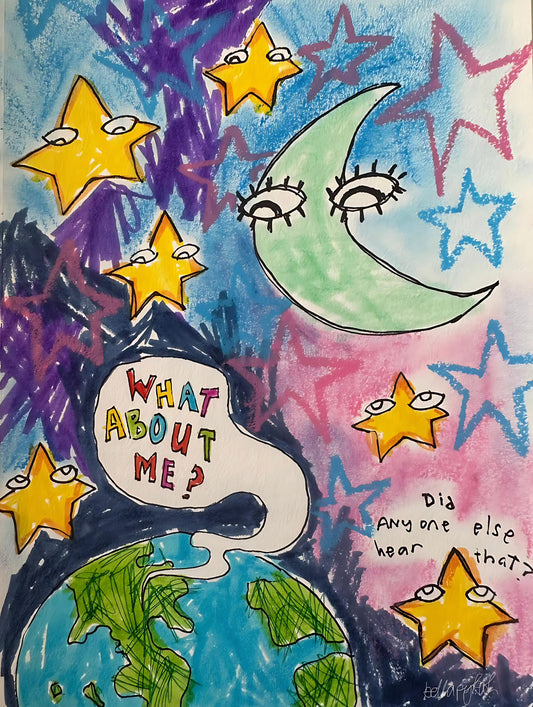 WHAT
ABOUT
ME?
Did
Any one else
hear that?